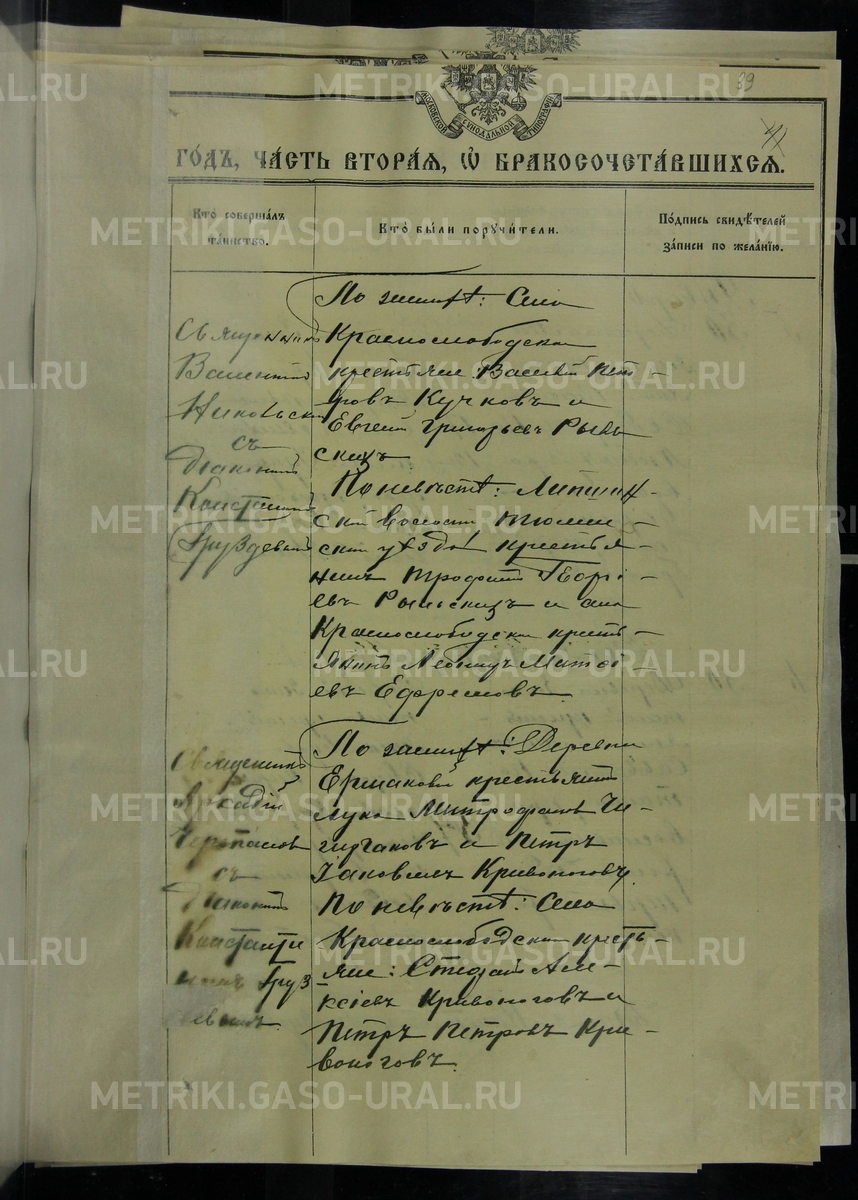 39
41
МОСКОВСКОЙ СѴНОДАЛЬНОЙ ТИПОГРАФІИ
ГОДЪ, ЧАСТЬ ВТОРАЯ, Ѡ БРАКОСОЧЕТАВШИХСЯ.
Кто совершалъ таинство.
Кто были поручители.
Подпись свидѣтелей записи по желанію.
Священникъ
Валентинъ
Никольскій
съ
Діакономъ
Константиномъ
Груздевымъ
По женихѣ: Села
Краснослободскаго
крестьяне: Василій Пет-
ровъ Кучковъ и
Евгеній Григорьевъ Рыль-
скихъ
По невѣстѣ: Липчин-
ской волости Тюмен-
скаго уѣзда крестья-
нинъ Трофимъ Георгі-
евъ Рыльскихъ и села
Краснослободскаго кресть-
янинъ Леонидъ Матѳі-
евъ Ефремовъ.
Священникъ
Аркадій
Черепановъ
съ
Діакономъ
Константи-
номъ Груз-
девымъ.
По женихѣ: Деревни
Ермаковой крестьяне
Лука Митрофановъ Чи-
гиргаковъ и Петръ
Іаковлевъ Кривоноговъ.
По невѣстѣ: Села
Краснослободскаго кресть-
яне: Стефанъ Але-
ксіевъ Кривоноговъ и
Петръ Петровъ Кри-
воноговъ.
METRIKI.GASO-URAL.RU